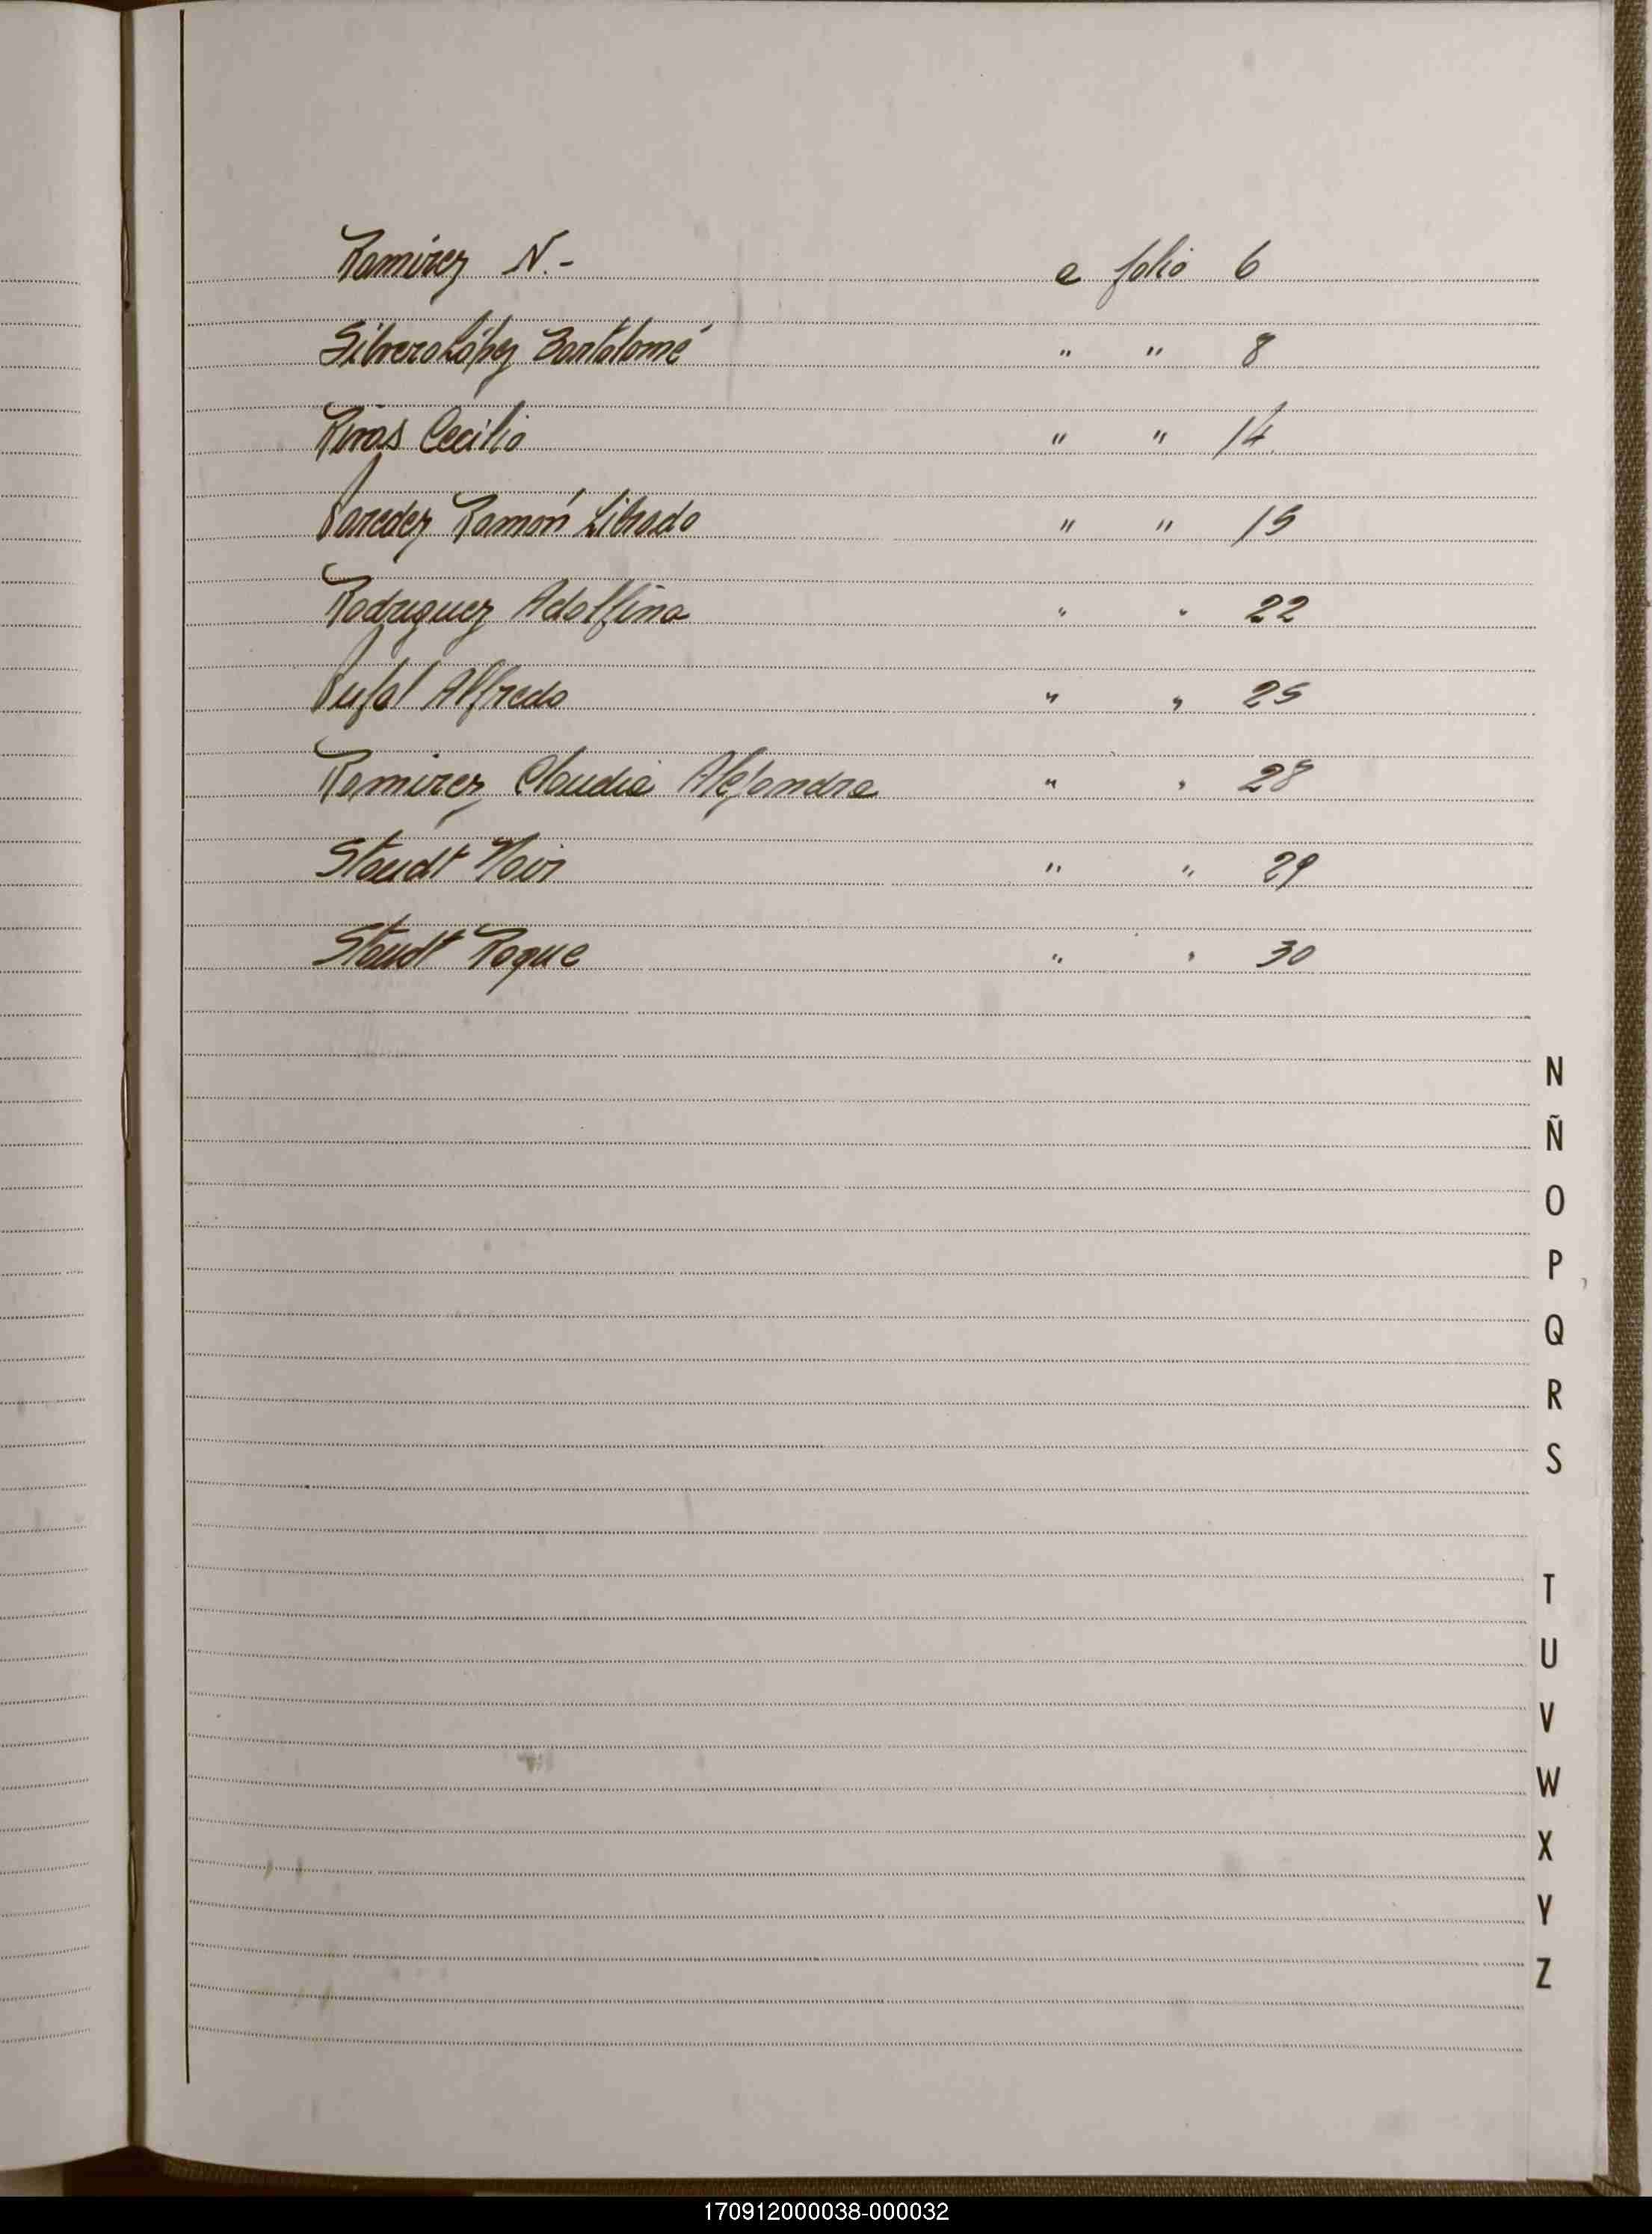 Ramirez N.- a folio 6
Silvero López Bartolomé " " 8
Rivas Cecilio " " 14
Paredez Ramón Librado " " 15
Rodriguez Adolfina " " 22
Pufal Alfredo " " 25
Ramirez Claudia Alejandra " " 28
Staudt Noir " " 29
Staudt Roque " " 30
N
Ñ
O
P
Q
R
S
T
U
V
W
X
Y
Z
170912000038-000032